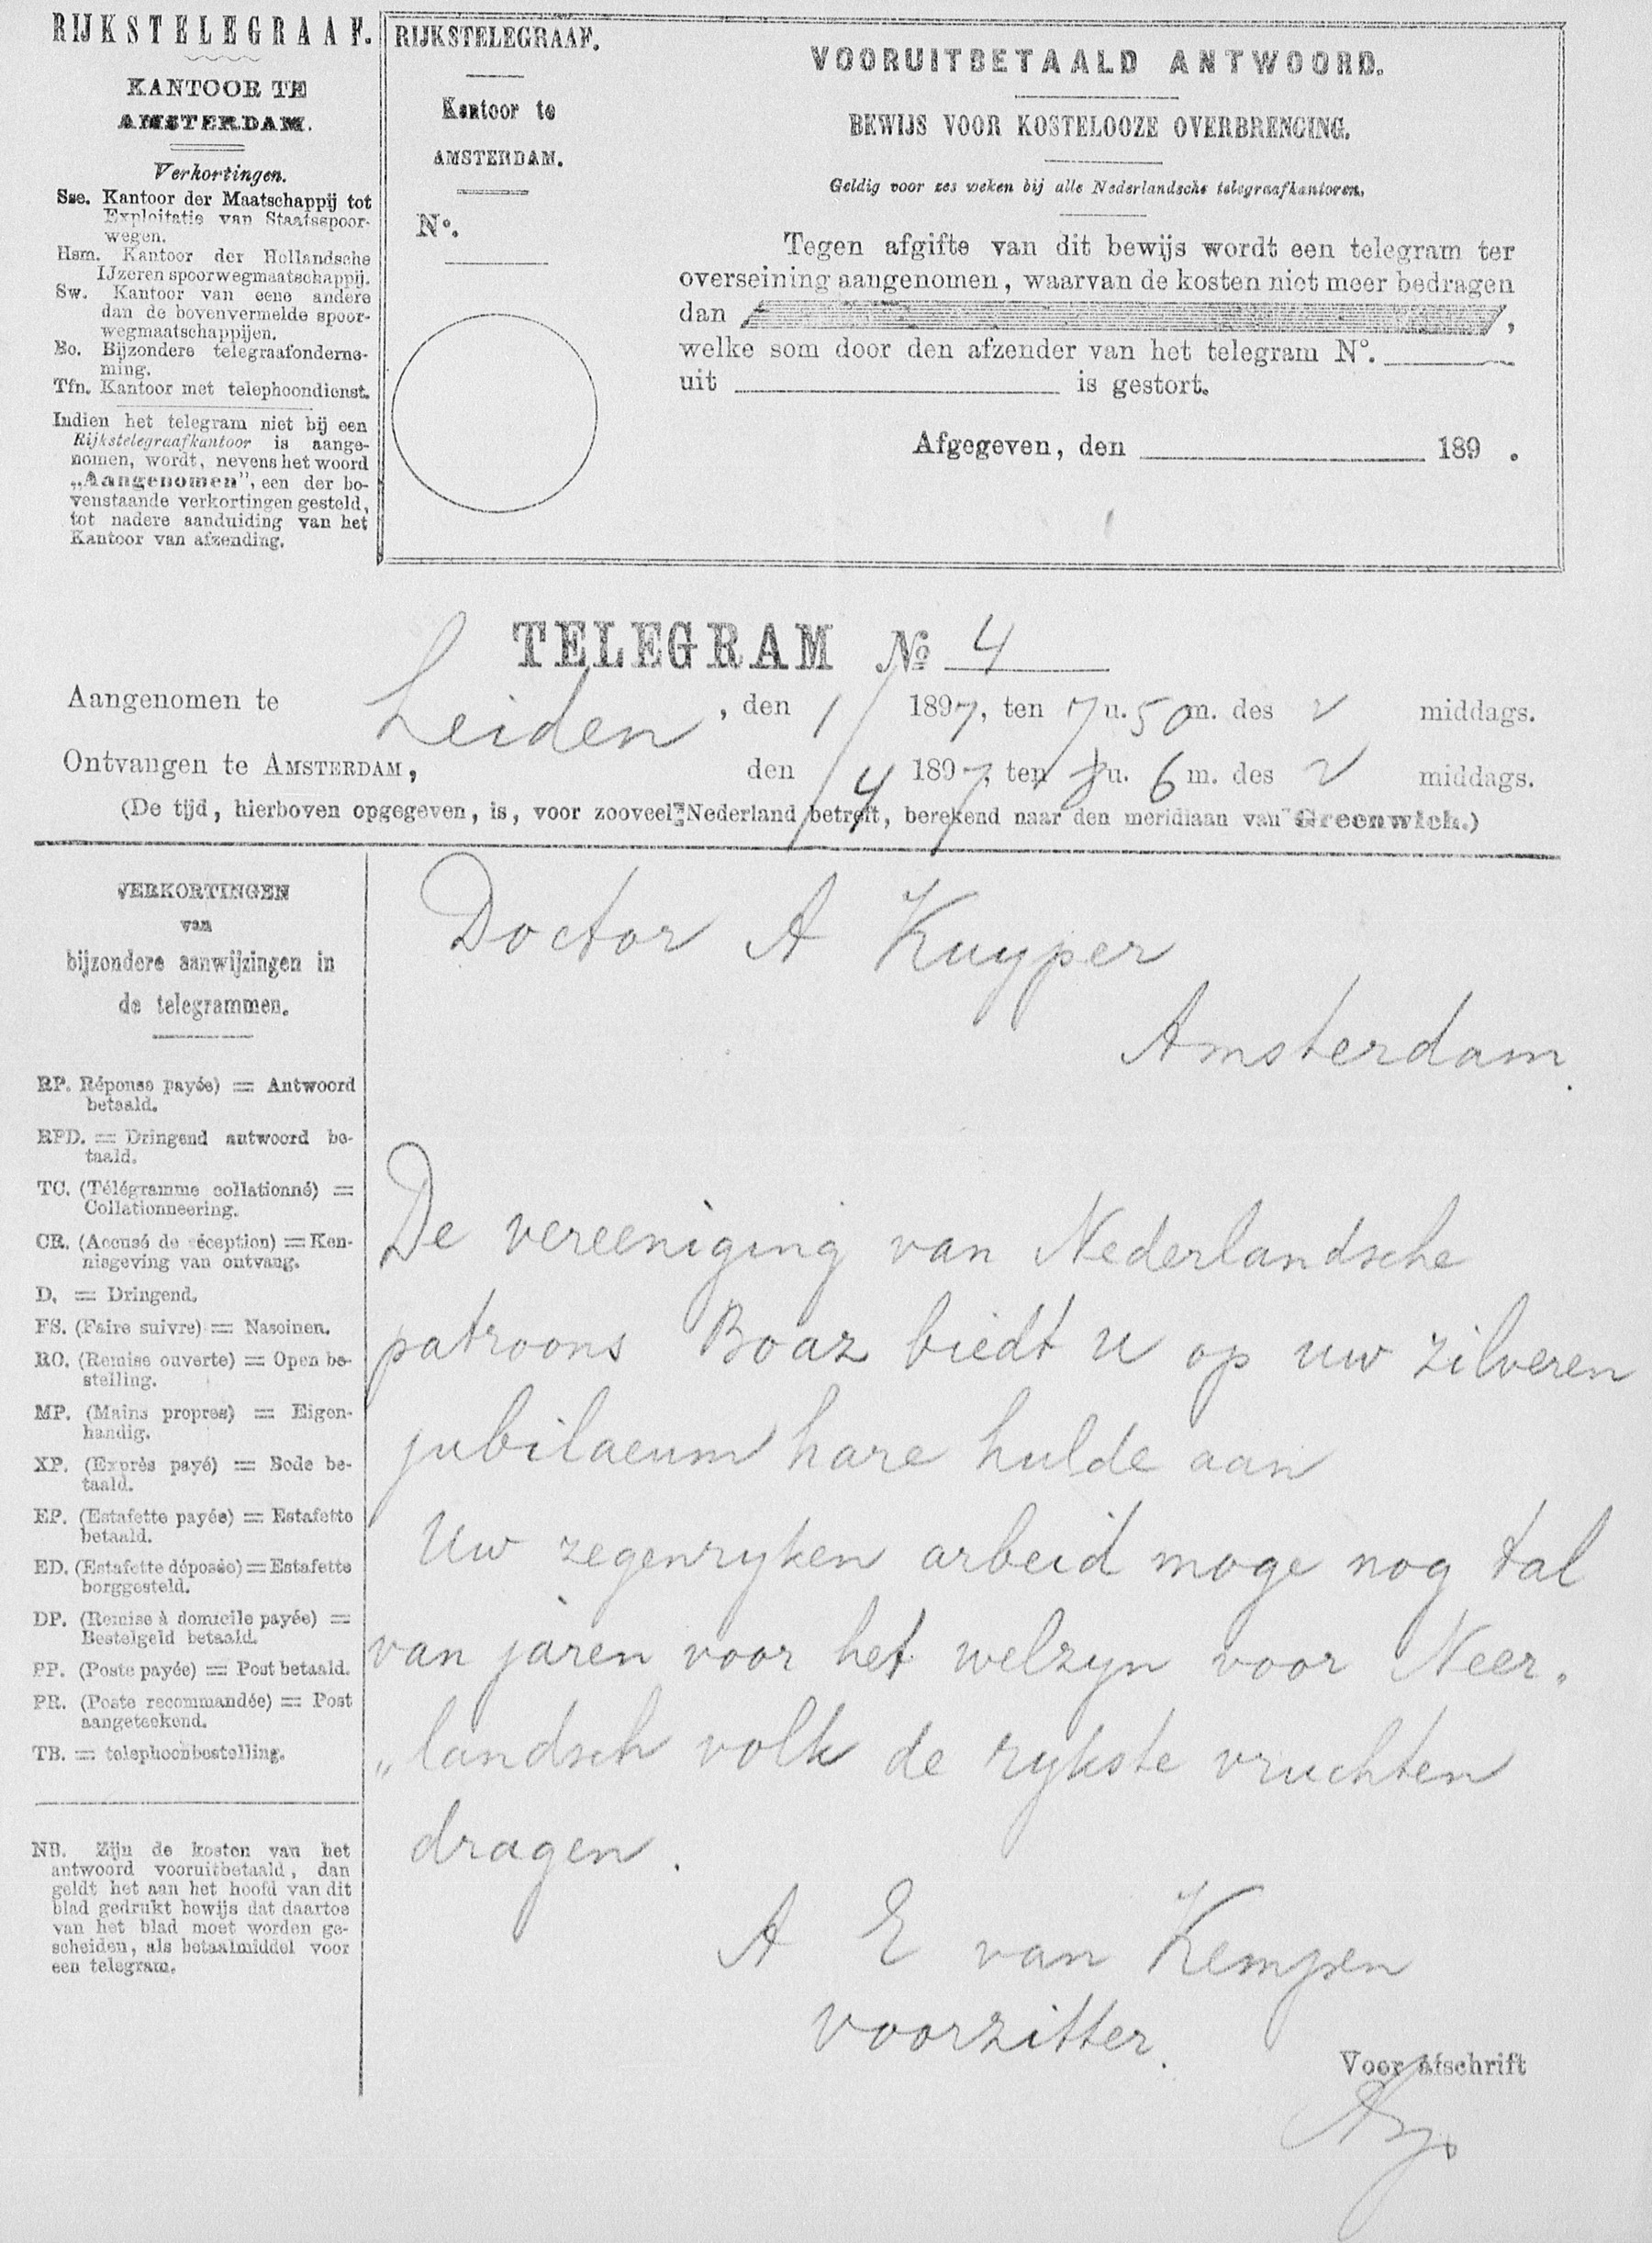 RIJKSTELEGRAAF.
KANTOOR TE
AMSTERDAM.
Verkortingen.
Sse. Kantoor der Maatschappij tot
Exploitatie van Staatsspoor-
wegen.
Hsm. Kantoor der Hollandsche
IJzeren spoorwegmaatschappij.
Sw. Kantoor van eene andere
dan de bovenvermelde spoor-
wegmaatschappijen.
Bo. Bijzondere telegraafonderne-
ming.
Tfn. Kantoor met telephoondienst.
Indien het telegram niet bij een
Rijkstelegraafkantoor is aange-
nomen, wordt, nevens het woord
„Aangenomen”, een der bo-
venstaande verkortingen gesteld,
tot nadere aanduiding van het
Kantoor van afzending.
RIJKSTELEGRAAF.
Kantoor te
AMSTERDAM.
No.
VOORUITBETAALD ANTWOORD.
BEWIJS VOOR KOSTELOOZE OVERBRENGING.
Geldig voor zes weken bij alle Nederlandsche telegraafkantoren.
Tegen afgifte van dit bewijs wordt een telegram ter
overseining aangenomen, waarvan de kosten niet meer bedragen
dan ,
welke som door den afzender van het telegram No.
uit is gestort.
Afgegeven, den 189 .
TELEGRAM No 4
Aangenomen te Leiden, den 1/4 1897, ten 7 u. 50 m. des v middags.
Ontvangen te AMSTERDAM, den 1/4 1897, ten 8 u. 6 m. des v middags.
(De tijd, hierboven opgegeven, is, voor zooveel Nederland betreft, berekend naar den meridiaan van Greenwich.)
VERKORTINGEN
van
bijzondere aanwijzingen in
de telegrammen.
RP. Réponse payée) = Antwoord
betaald.
RPD. = Dringend antwoord be-
taald.
TC. (Télégramme collationné) =
Collationneering.
CR. (Accusé de réception) = Ken-
nisgeving van ontvang.
D. = Dringend.
FS. (Faire suivre) = Naseinen.
RO. (Remise ouverte) = Open be-
stelling.
MP. (Mains propres) = Eigen-
handig.
XP. (Exprès payé) = Bode be-
taald.
EP. (Estafette payée) = Estafette
betaald.
ED. (Estafette déposée) = Estafette
borggesteld.
DP. (Remise à domicile payée) =
Bestelgeld betaald.
PP. (Poste payée) = Post betaald.
PR. (Poste recommandée) = Post
aangeteekend.
TB. = telephoonbestelling.
NB. Zijn de kosten van het
antwoord vooruitbetaald, dan
geldt het aan het hoofd van dit
blad gedrukt bewijs dat daartoe
van het blad moet worden ge-
scheiden, als betaalmiddel voor
een telegram.
Doctor A Kuyper
Amsterdam.
De vereeniging van Nederlandsche
patroons Boaz biedt u op uw zilveren
jubilaeum hare hulde aan
Uw zegenryken arbeid moge nog tal
van jaren voor het welzyn voor Neer„
„landsch volk de rykste vruchten
dragen.
A E van Kempen
voorzitter.
Voor afschrift